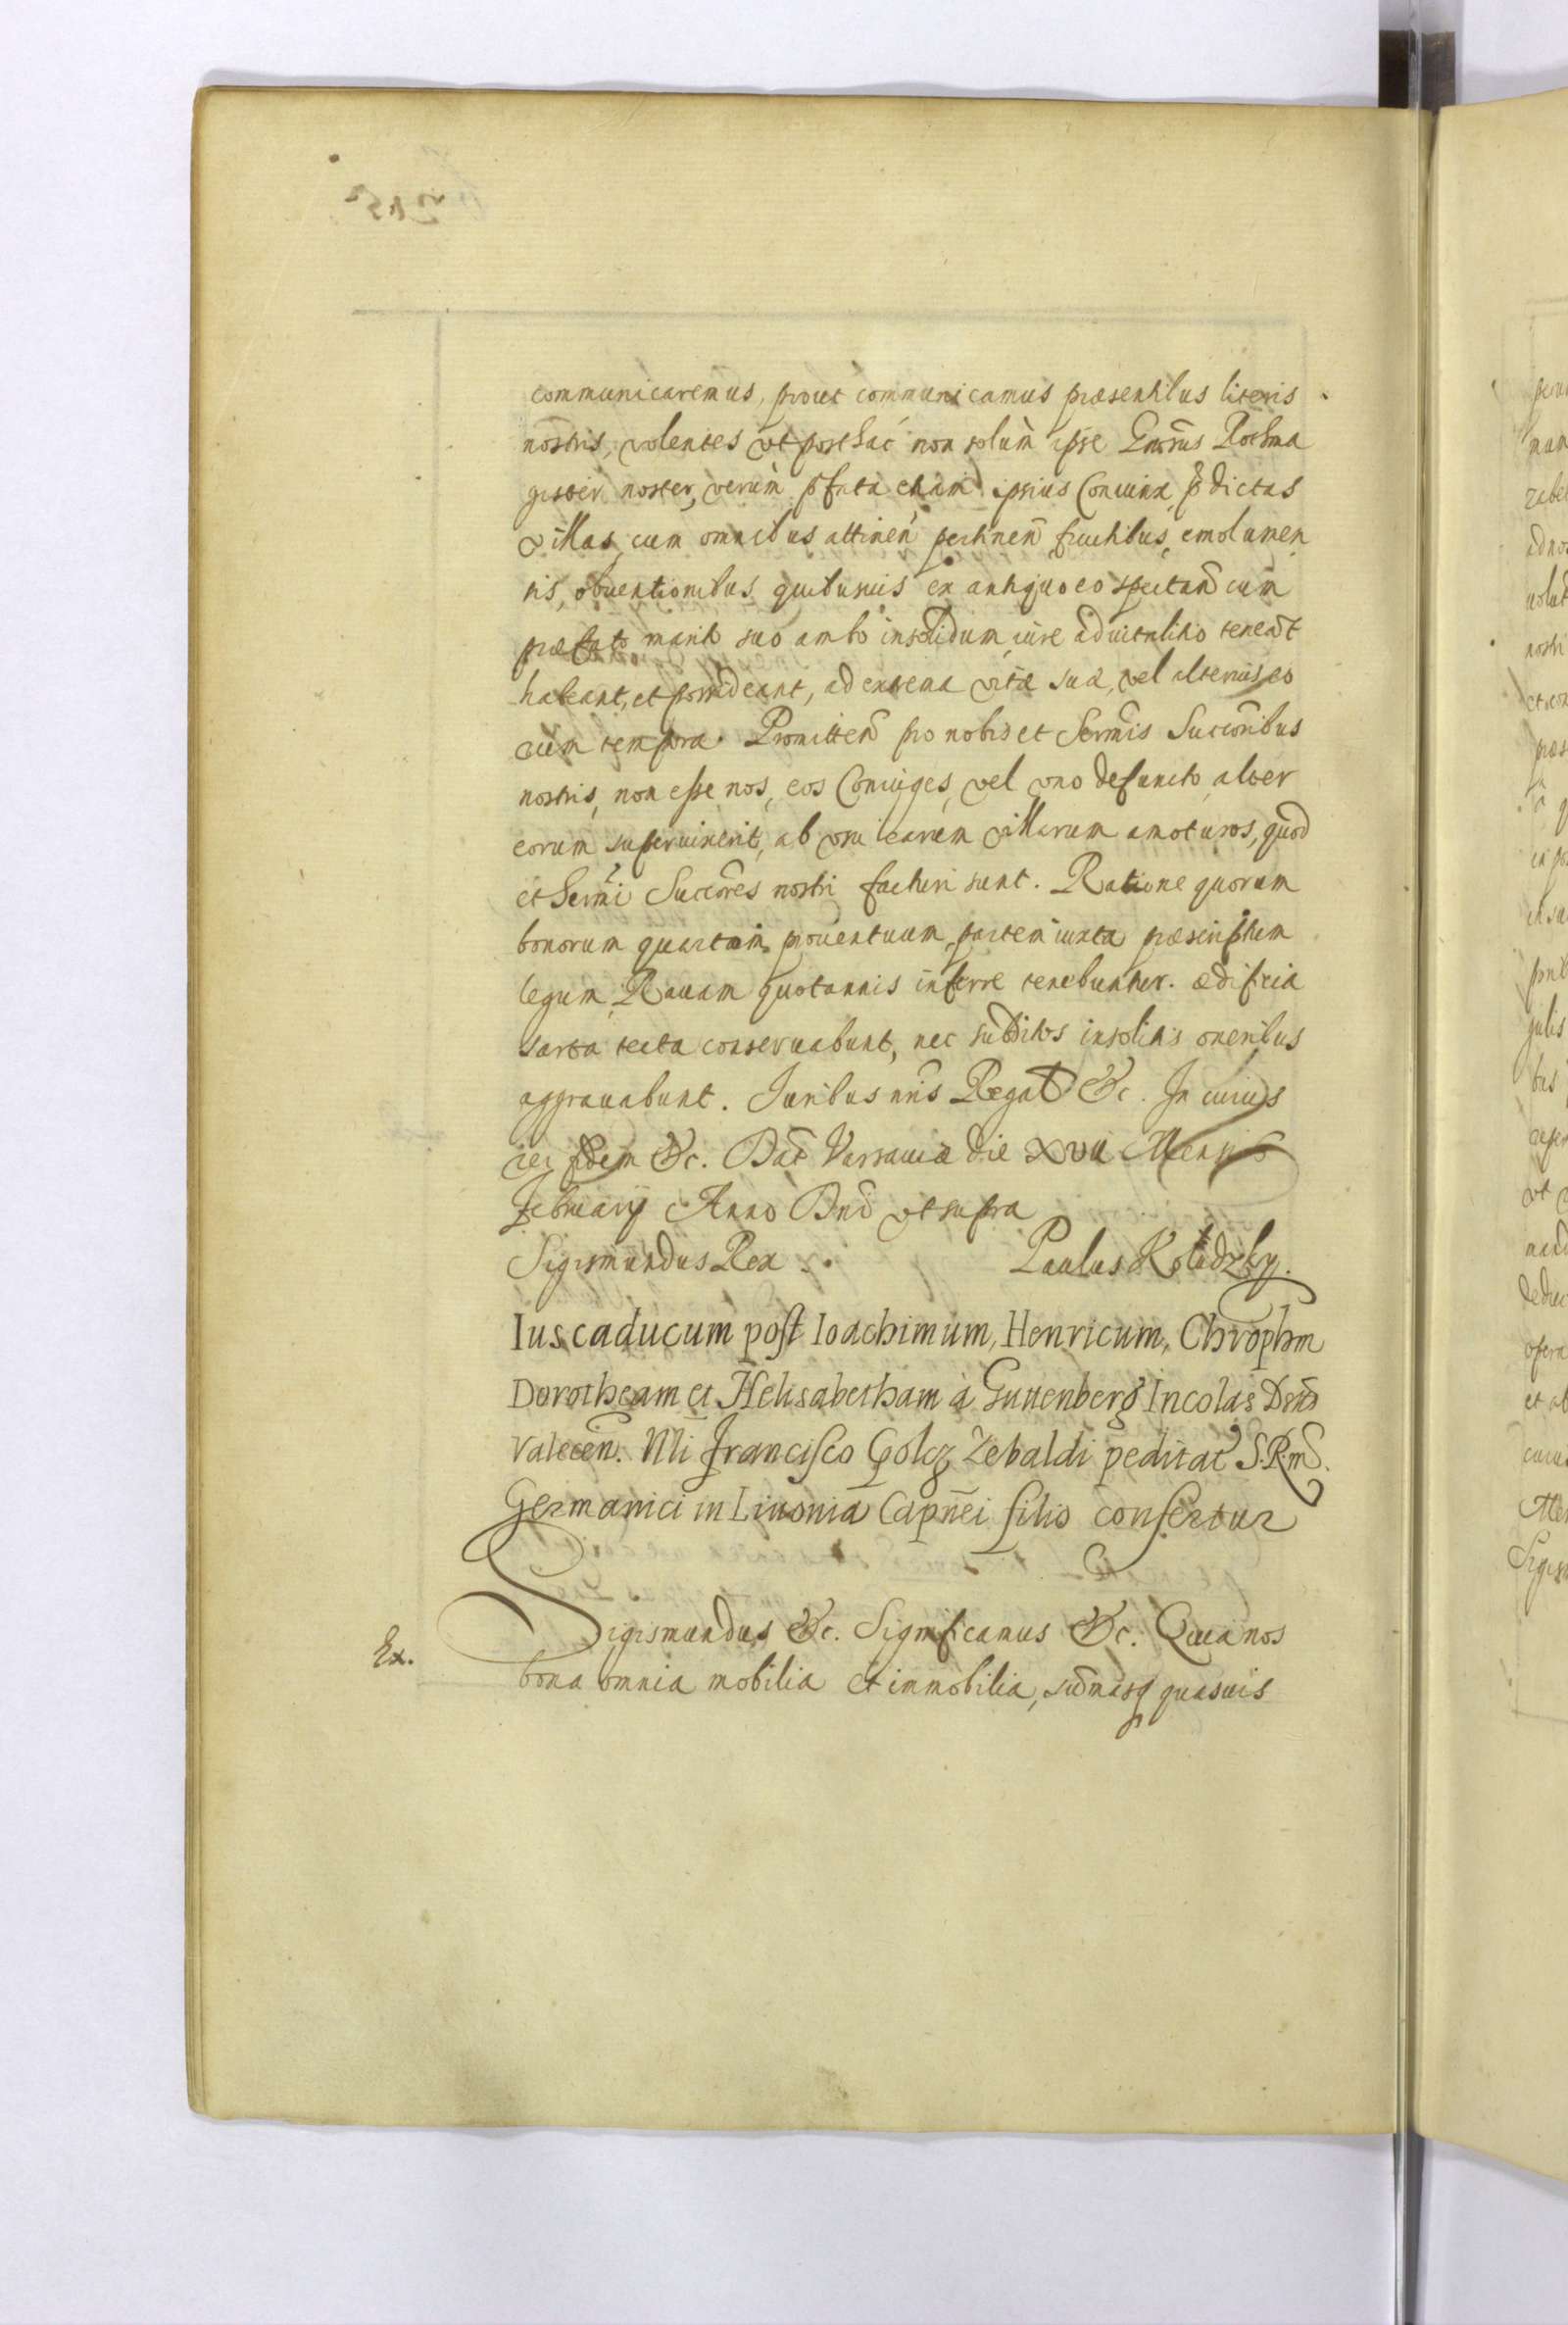 communicaremus, prout communicamus præsentibus literis
nostris, volentes ut posthac non solùm ipse Rothma
gister noster, verùm pfata etiam ipsius Coniunx pdictas
villas cum omnibus attinen pertinen fructibus, emolumen
tis, obuentionibus quibusuis ex antiquo eo spectan cum
præfato marito suo ambo insolidum, iure aduitalitio teneant
habeant, et possideant, ad extrema vitæ suæ, vel alterius eo
rum tempora. Promitten pro nobis et Sermis Succoribus
nostris, non esse nos, eos Coniuges, vel uno defuncto, alter
eorum superuixerit, ab usu earum villarum amoturos, quod
et Sermi Succores nostri facturi sunt. Ratione quorum
bonorum quartam prouentuum partem iuxta præscriptum
legum, Rauam quotannis inferre tenebuntur. ædificia
sarta tecta conseruabunt, nec subditos insolitis oneribus
aggrauabunt. Iuribus nris Regal &c. In cuius
rei fidem &c. Dat Varsauiæ die XVII Mensis
Februarij Anno Dni ut supra
Sigismundus Rex.
Paulus Koludzky.
Ius caducum post Ioachimum, Henricum, Chrophm
Dorotheam et Helisabetham à Guttenberg Incolas Distr
Valecen. Nli Francisco Golcz Zebaldi peditat S.R.M.
Germanici in Liuonia Capnei filio confertur
Ex.
Sigismundus &c. Significamus &c. Quia nos
bona omnia mobilia et immobilia, summasq quasuis